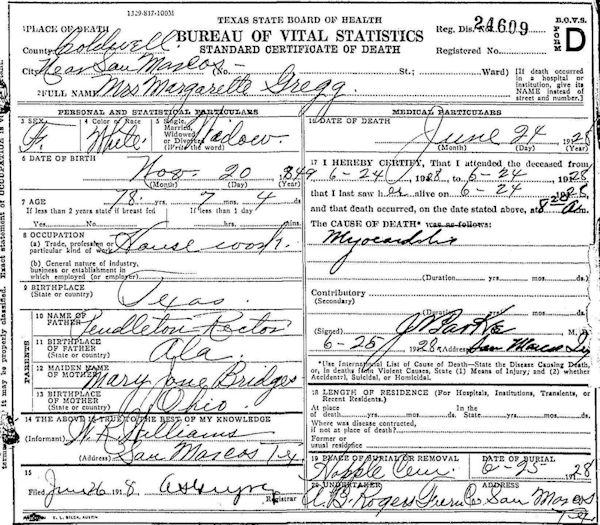 1329-817-100M
TEXAS STATE BOARD OF HEALTH
BUREAU OF VITAL STATISTICS
STANDARD CERTIFICATE OF DEATH
Reg. Dis. No. 24609
Registered No.
B.O.V.S.
FORM D
PLACE OF DEATH
County Coldwell
City Near San Marcos (No. St.; Ward)
[If death occurred in a hospital or institution, give its NAME instead of street and number.]
2 FULL NAME Mrs Margarette Gregg.
PERSONAL AND STATISTICAL PARTICULARS
3 SEX F.
4 Color or Race White
5 Single, Married, Widowed or Divorced (Write the word) Widow
6 DATE OF BIRTH
Nov 20 1849
(Month) (Day) (Year)
7 AGE 78 7 4
yrs. mos. ds.
If less than 2 years state if breast fed
If less than 1 day
Yes. No. hrs. mins.
8 OCCUPATION
(a) Trade, profession or particular kind of work House work.
(b) General nature of industry, business or establishment in which employed (or employer)
9 BIRTHPLACE
(State or country) Texas
PARENTS
10 NAME OF FATHER Pendleton Rector
11 BIRTHPLACE OF FATHER
(State or country) Ala.
12 MAIDEN NAME OF MOTHER Mary Jane Bridges
13 BIRTHPLACE OF MOTHER
(State or country) Ohio
14 THE ABOVE IS TRUE TO THE BEST OF MY KNOWLEDGE
(Informant) Williams
(Address) San Marcos Tex
15
Filed Jun 26 1918
Registrar
MEDICAL PARTICULARS
16 DATE OF DEATH
June 24 1928
(Month) (Day) (Year)
17 I HEREBY CERTIFY, That I attended the deceased from
6-24 1928 to 6-24 1928
that I last saw her alive on 6-24 1928
and that death occurred, on the date stated above, at m.
The CAUSE OF DEATH* was as follows:
Myocarditis
(Duration) yrs. mos. ds.
Contributory
(Secondary)
(Duration) yrs. mos. ds.
(Signed) M. D.
6-25 1928 (Address) San Marcos Tx
*Use International List of Cause of Death—State the Disease Causing Death, or, in deaths from Violent Causes, State (1) Means of Injury; and (2) whether Accidental, Suicidal, or Homicidal.
18 LENGTH OF RESIDENCE (For Hospitals, Institutions, Transients, or Recent Residents.)
At place of death yrs. mos. ds. In the State yrs. mos. ds.
Where was disease contracted, if not at place of death?
Former or usual residence
19 PLACE OF BURIAL OR REMOVAL
Cem.
DATE OF BURIAL
6-25 1928
20 UNDERTAKER
A. B. Rogers Furn Co
ADDRESS
San Marcos Tex.